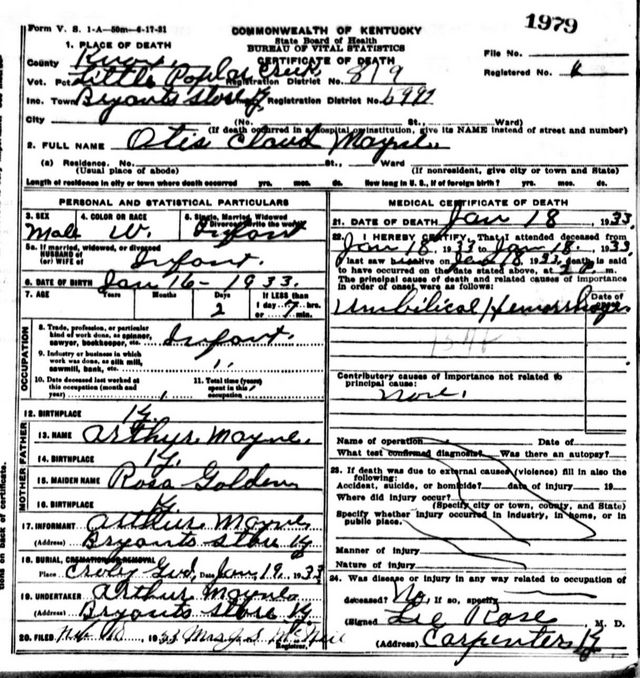 Form V. S. 1-A—50m—4-17-31
1979
COMMONWEALTH OF KENTUCKY
State Board of Health
BUREAU OF VITAL STATISTICS
CERTIFICATE OF DEATH
1. PLACE OF DEATH
County Knox
Vot. Pct. Little Poplar Creek Registration District No. 819
Inc. Town Bryants Store Ky Registration District No. 6991
File No.
Registered No.
City (No. St., Ward)
(If death occurred in a hospital or institution, give its NAME instead of street and number)
2. FULL NAME Otis Claud Mayne
(a) Residence. No. St., Ward
(Usual place of abode) (If nonresident, give city or town and State)
Length of residence in city or town where death occurred yrs. mos. ds. How long in U. S., if of foreign birth? yrs. mos. ds.
PERSONAL AND STATISTICAL PARTICULARS
3. SEX 4. COLOR OR RACE 5. Single, Married, Widowed
Divorced (write the word)
Male W. Infant
5a. If married, widowed, or divorced
HUSBAND of
(or) WIFE of Infant.
6. DATE OF BIRTH Jan 16—1933.
7. AGE Years Months Days If LESS than
2 1 day 7 hrs.
or min.
OCCUPATION
8. Trade, profession, or particular
kind of work done, as spinner,
sawyer, bookkeeper, etc. Infant.
9. Industry or business in which
work was done, as silk mill,
sawmill, bank, etc. "
10. Date deceased last worked at
this occupation (month and
year)
11. Total time (years)
spent in this
occupation
12. BIRTHPLACE Ky.
FATHER
13. NAME Arthur Mayne
14. BIRTHPLACE Ky.
MOTHER
15. MAIDEN NAME Rosa Golden
16. BIRTHPLACE Ky
17. INFORMANT Arthur Mayne
(Address) Bryants Store Ky
18. BURIAL, CREMATION OR REMOVAL
Place Date Jan 19. 1933
19. UNDERTAKER Arthur Mayne
(Address) Bryants Store Ky
20. FILED 1933
Registrar.
MEDICAL CERTIFICATE OF DEATH
21. DATE OF DEATH Jan 18 1933.
22. I HEREBY CERTIFY, That I attended deceased from
Jan 18, 1933 to Jan 18. 1933
I last saw alive on Jan 18 1933. death is said
to have occurred on the date stated above, at m.
The principal cause of death and related causes of importance
in order of onset were as follows:
Date of
Umbilical Hemorrhage
Contributory causes of importance not related to
principal cause:
None.
Name of operation Date of
What test confirmed diagnosis? Was there an autopsy?
23. If death was due to external causes (violence) fill in also the
following:
Accident, suicide, or homicide? date of injury 19
Where did injury occur?
(Specify city or town, county, and State)
Specify whether injury occurred in industry, in home, or in
public place.
Manner of injury
Nature of injury
24. Was disease or injury in any way related to occupation of
deceased? No. If so, specify
(Signed Rose M. D.
(Address) Carpenter Ky
tions on back of certificate.